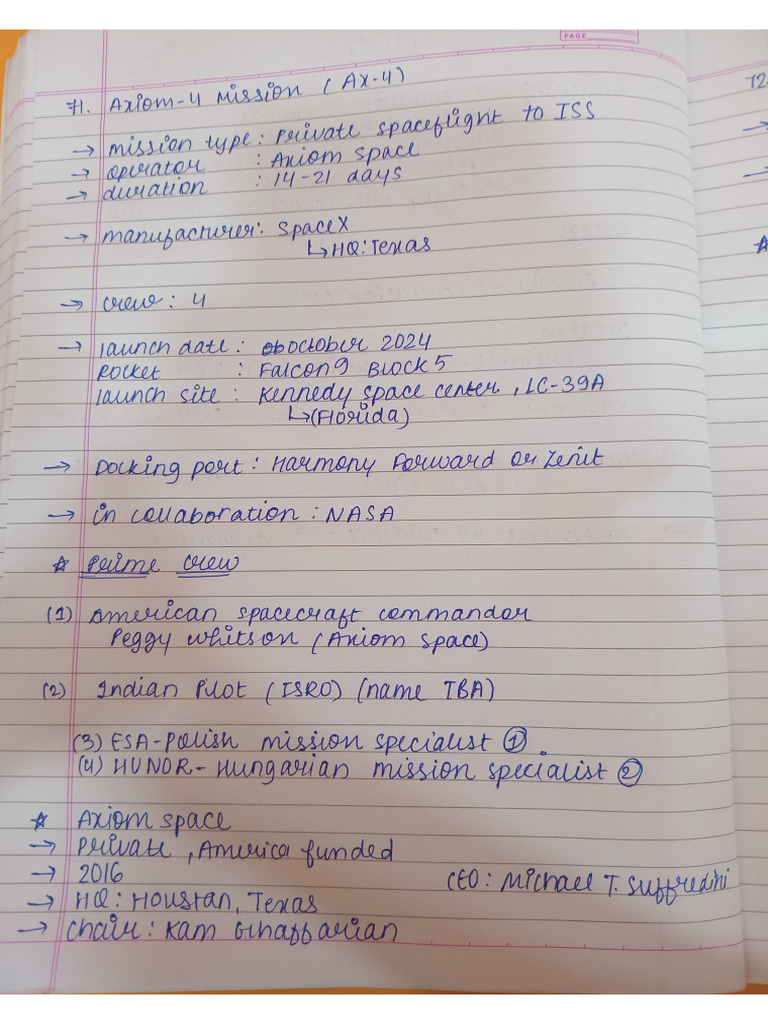 PAGE
71. Axiom-4 Mission (Ax-4)
→ Mission type : Private spaceflight to ISS
→ operator : Axiom Space
→ duration : 14-21 days
→ manufacturer : SpaceX
↳ HQ : Texas
→ crew : 4
→ launch date : October 2024
Rocket : Falcon 9 Block 5
launch site : Kennedy Space center, LC-39A
↳ (Florida)
→ Docking port : Harmony Forward or Zenit
→ in collaboration : NASA
☆ Prime crew
(1) American spacecraft commandor
Peggy Whitson (Axiom Space)
(2) Indian Pilot (ISRO) (name TBA)
(3) ESA-Polish mission specialist ①
(4) HUNOR - Hungarian mission specialist ②
☆ Axiom space
→ Private, America funded
→ 2016
CEO : Michael T. Suffredini
→ HQ : Houstan, Texas
→ Chair : Kam Ghaffarian
72.